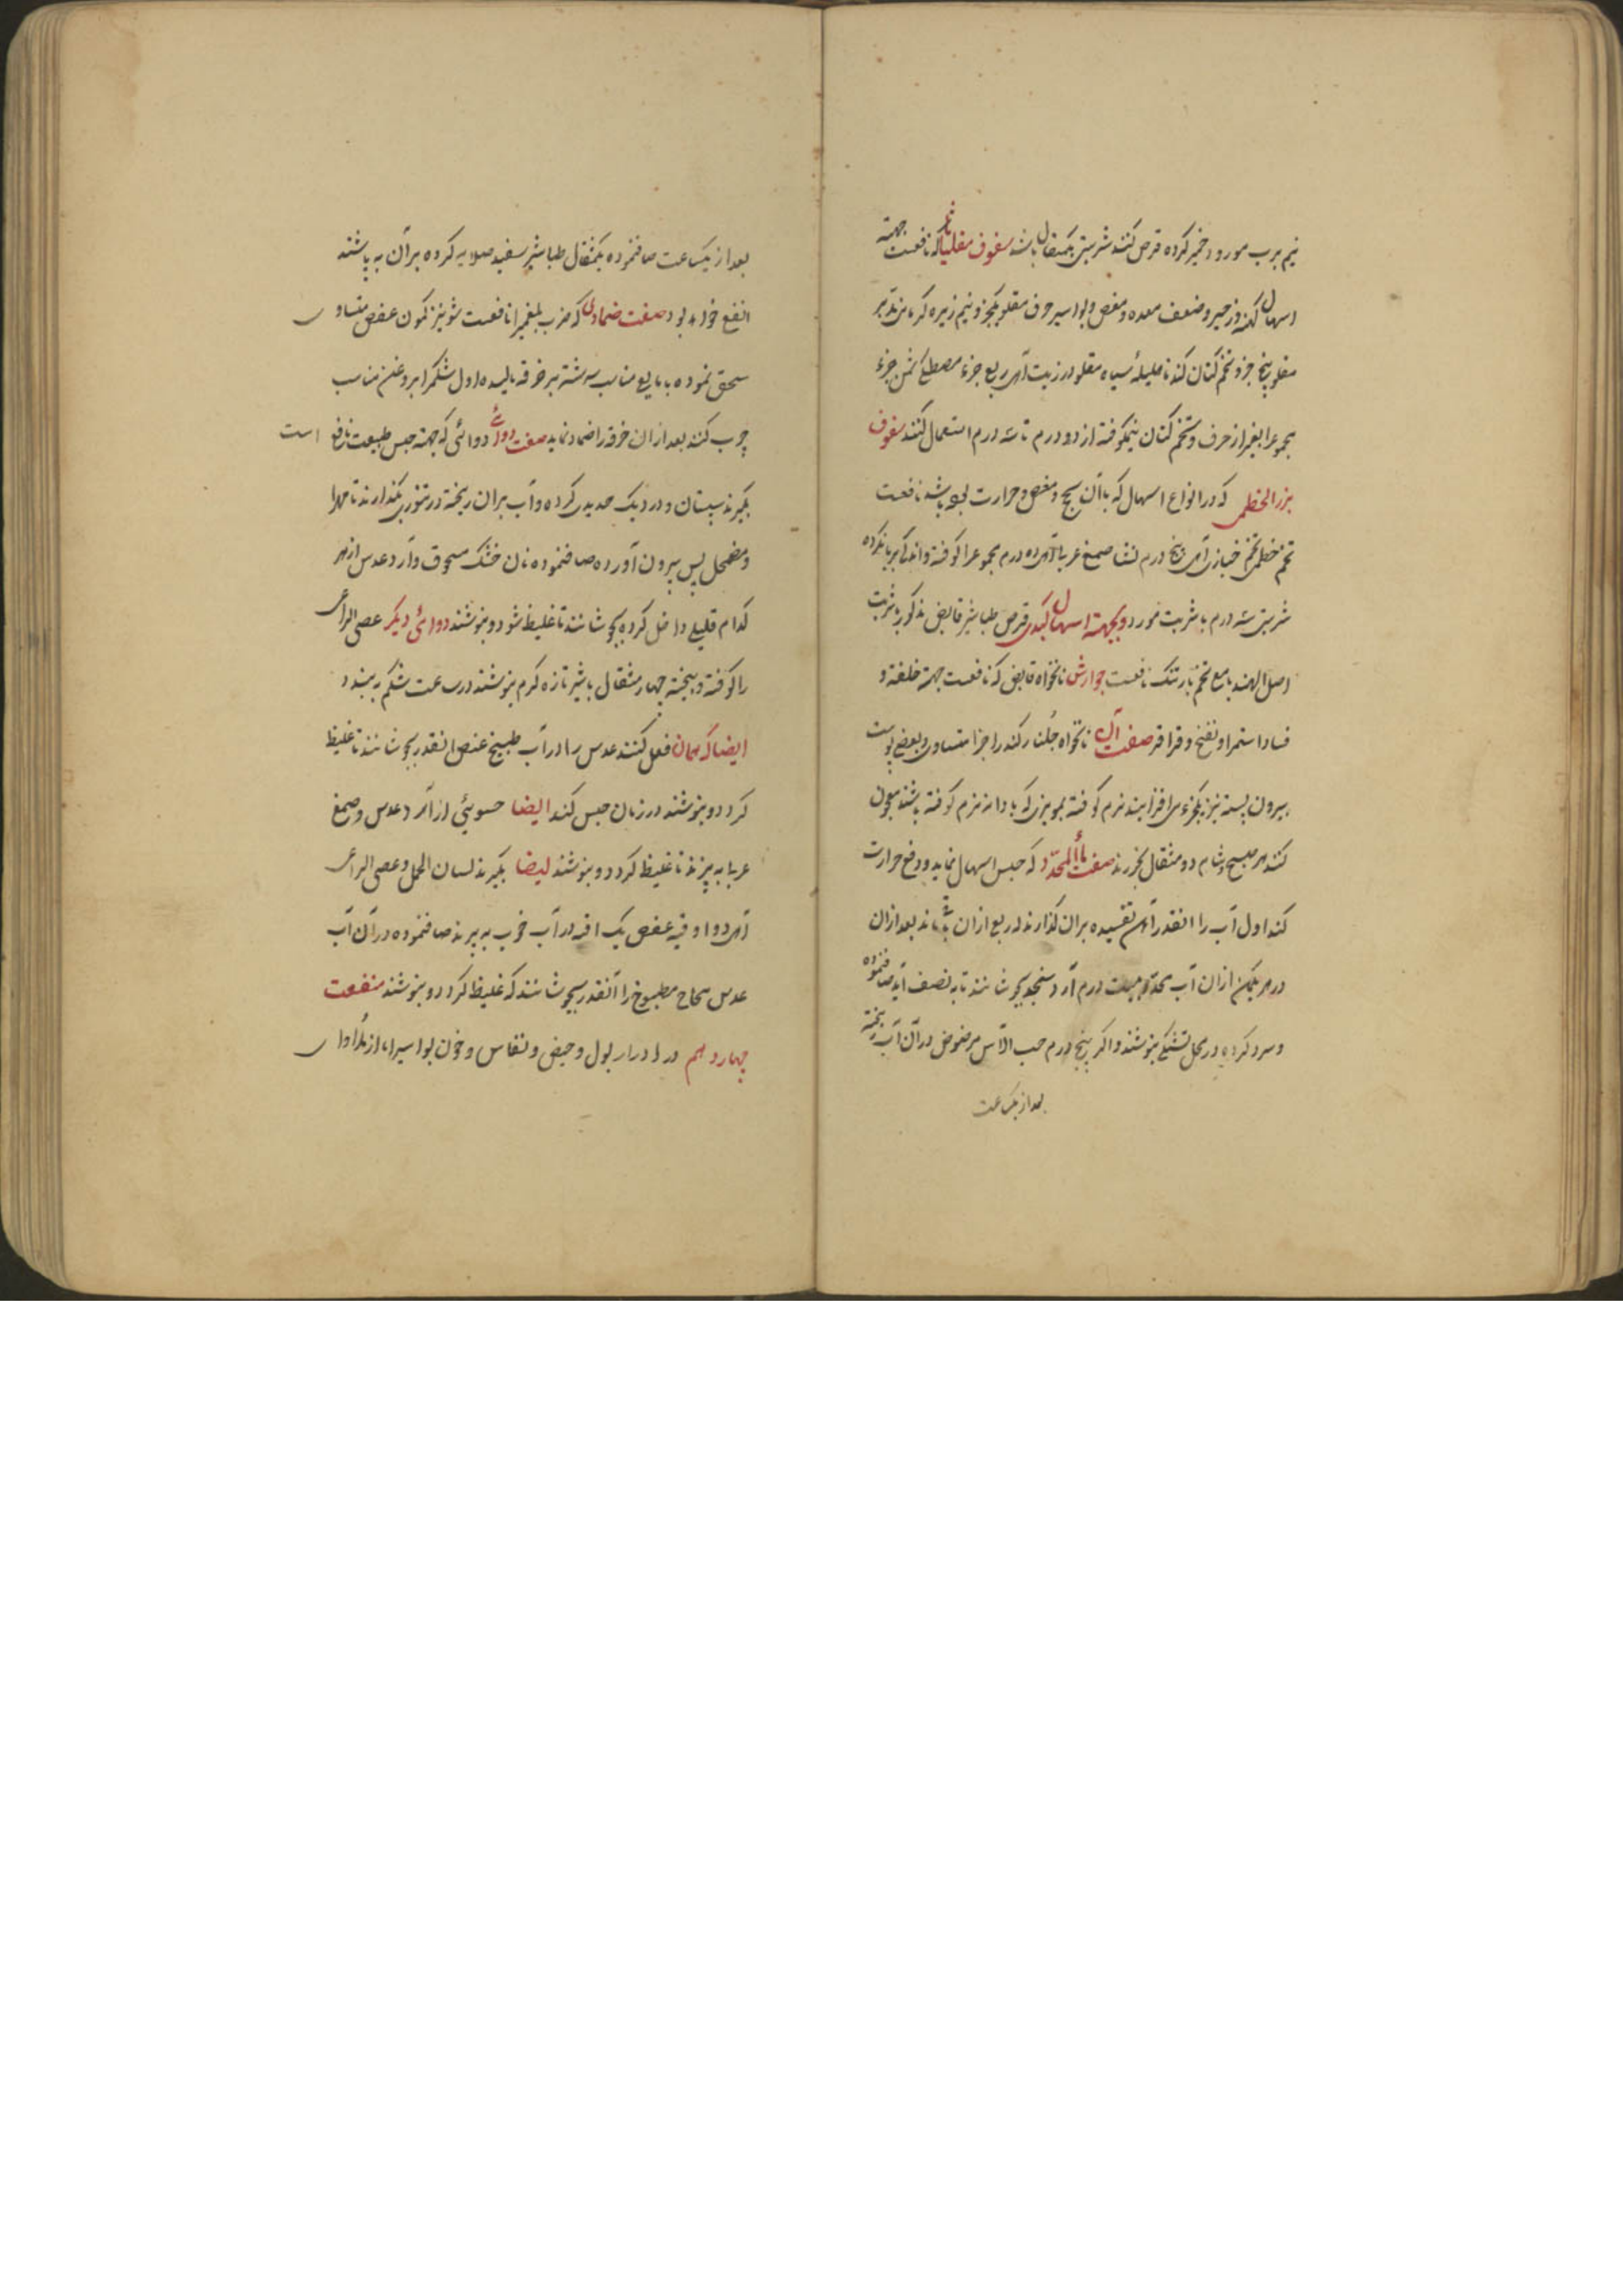 نیم برب مورد خمیر کرده قرص کنند شربتی یکمثقال باشد سفوف مقلیاثا که نافعست جهته
اسهال کهنه و زحیر و ضعف معده و مغص و بواسیر حرف مقلو یکجزو نیم زیره کرمانی مدبر
مقلو پنج جزو تخم کتان کندنا هلیلهٔ سیاه مقلو در زیت آهر ربع جزء مصطکی ثمن جزء
مجموع را بغیر از حرف و تخم کتان نیمکوفته از دو درم تا سه درم استعمال کنند سفوف
بزر الخطمی که در انواع اسهال که باآن سحج و مغص و حرارت باشد نافعست
تخم خطمی تخم خبازی پنج درم نشا صمغ عربی ده درم مجموع را کوفته و اندک بریان کرده
شربتی سه درم با شربت مورد و بجهته اسهال کبدی قرص طباشیر قابض مذکور با شربت
اصل الهندبا مع تخم بارتنک نافعست جوارش نانخواه قابض که نافعست جهته خلفه و
فساد استمرا و نفخ و قراقر صفت آن نانخواه جلنار کندر اجزا متساوی و بعضی پوست
بیرون پسته نیز یکجزء می افزایند نرم کوفته بمویزی که با دانه نرم کوفته باشند معجون
کنند هر صبح و شام دو مثقال بخورند صفت ماأ المحدّد که حبس اسهال نماید و دفع حرارت
کند اول آب را انقدر آهن تفسیده بران گذارند که ربع ازان باقی ماند بعد ازان
در هر یکمن ازان آب محدّد بیست درم آرد سنجد بجوشانند تا به نصف آید صافنموده
و سرد کرده در محل تشنگی بنوشند و اکر پنج درم حب الآس مرضوض در آن آب ریخته
بعد از یکساعت
بعد از یکساعت صافنموده یکمثقال طباشیر سفید صلایه کرده بر آن به پاشند
انفع خواهد بود صفت ضمادی که ضرب بلغمی را نافعست شونیز کمون عفص متساوی
سحق نموده با مایع مناسب سرشته بر خرقه مالیده اول شکم را بروغن مناسب
چرب کنند بعد ازان خرقه را ضماد نماید صفت دوائی دوائی که جهته حبس طبیعت نافع است
بگیرند سپستان و در دیک حدیدی کرده و آب بران ریخته در تنوری بگذارند تا مهرا
و مضمحل پس بیرون آورده صافنموده نان خشک مسحوق و آرد عدس از هر
کدام قلیلی داخل کرده بجوشانند تا غلیظ شود و بنوشند دوائی دیکر عصی الراعی
را کوفته و بیخته چهار مثقال باشیر تازه کرم بنوشند در ساعت شکم به بندد
ایضا که همان فعل کنند عدس را در آب طبیخ عفص انقدر بجوشانند تا غلیظ
کردد و بنوشند در زمان حبس کند ایضا حسوئی از آرد عدس و صمغ
عربی به پزند تا غلیظ کردد و بنوشند ایضا بگیرند لسان الحمل و عصی الراعی
دو اوقیه عفص یک اوقیه در آب خوب به پزند صافنموده در آن آب
عدس صحاح مطبوخ را آنقدر بجوشانند که غلیظ کردد و بنوشند منفعت
چهاردهم در ادرار بول و حیض و نفاس و خون بواسیر از مداوای